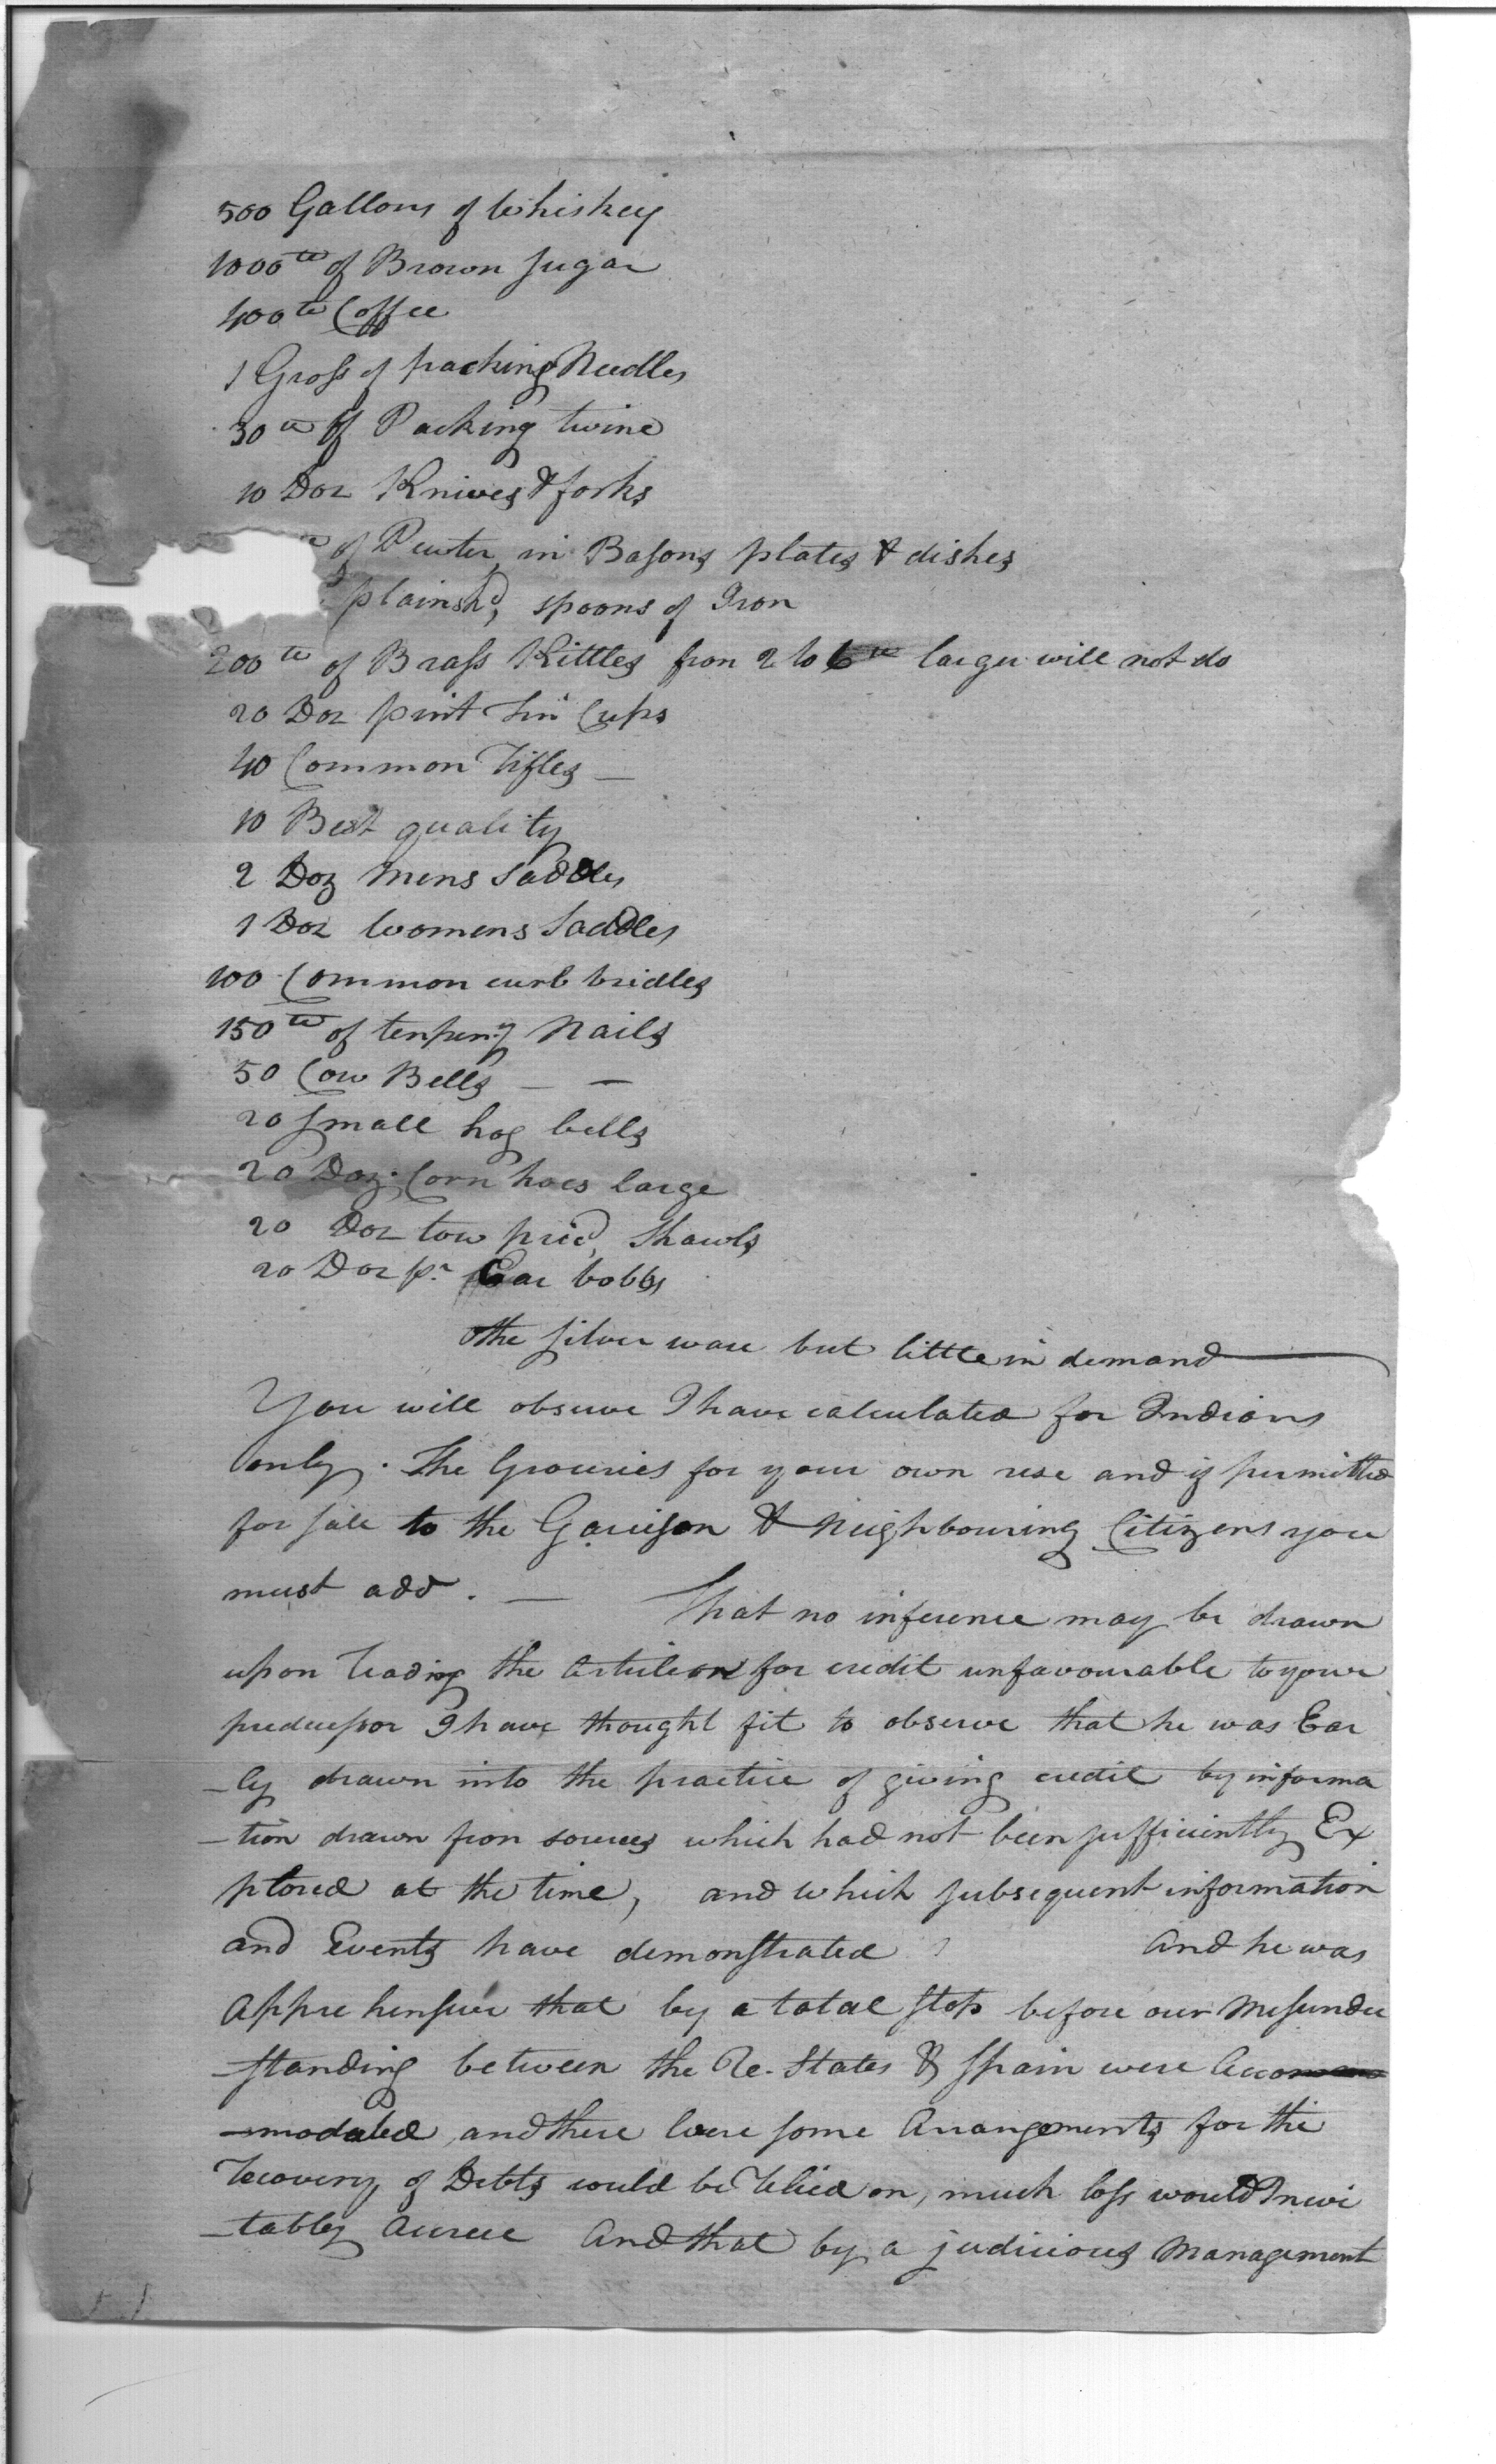 500 Gallons of Whiskey
1000 lb of Brown Sugar
400 lb Coffee
1 Gross of packing Needles
30 lb of Packing twine
10 Doz Knives & forks
of Pewter in Basons plates & dishes
spoons of Iron
200 lb of Brass Kittles from 2 to 6 lb larger will not do
20 Doz pint tin Cups
40 Common Rifles —
10 Best quality
2 Doz mens Saddles
1 Doz Womens Saddles
100 Common curb bridles
150 lb of tenpeny Nails
50 Cow Bells — —
20 Small hog bells
20 Doz. Corn hoes large
20 Doz low pricd, Shawls
20 Doz pr Ear bobbs
the Silver ware but little in demand —
You will observe I have calculated for Indians
only. The Groceries for your own use and if permitted
for sale to the Garrison & Neighbouring Citizens you
must add. — That no inference may be drawn
upon reading the Article on for credit unfavourable to your
predecessor I have thought fit to observe that he was Ear
-ly drawn into the practice of giving credit by informa
-tion drawn from sources which had not been sufficiently Ex
plored at the time, and which subsequent information
and Events have demonstrated And he was
Apprehensive that by a total stop before our Misunder
-standing between the U. States & Spain were Accom
-modated, and there were some Arrangements for the
recovery of Debts could be relied on, much loss would Inevi
-tably Accrue And that by a judicious Management